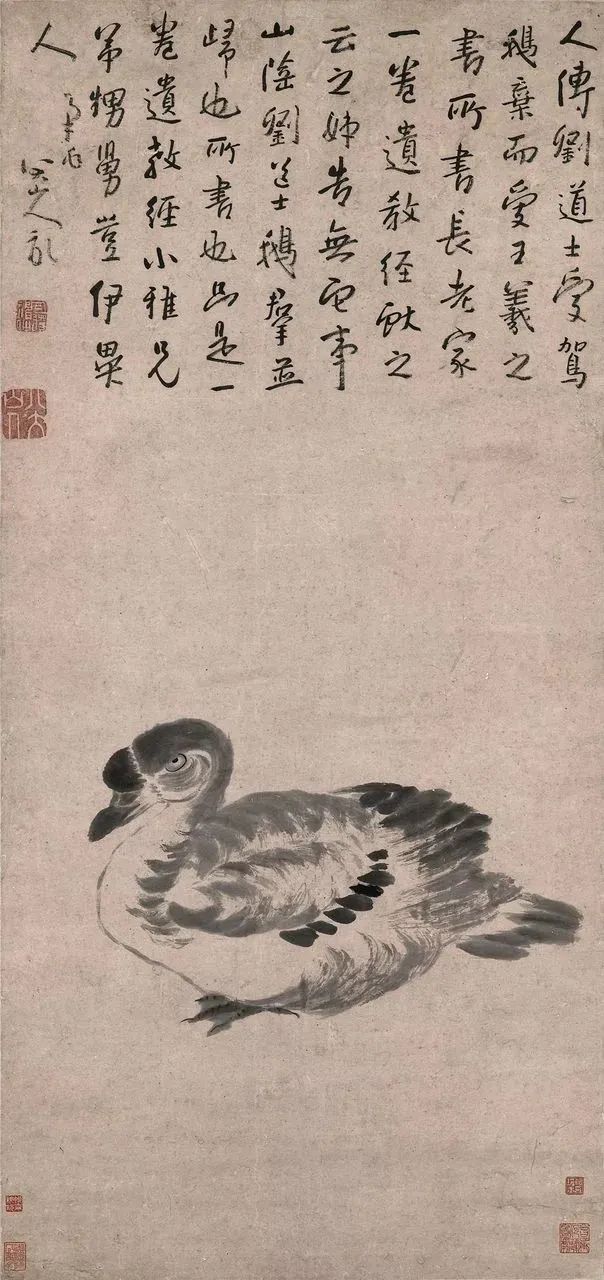 人傳劉道士愛鴐
鵝棄而愛王羲之
書所書長老家
一卷遺教經獻之
云之姊告無它事
山陰劉道士鵝羣並
歸也所書也只是一
卷遺教經小雅兄
弟甥舅豈伊異
人
八大山人記
八大山人